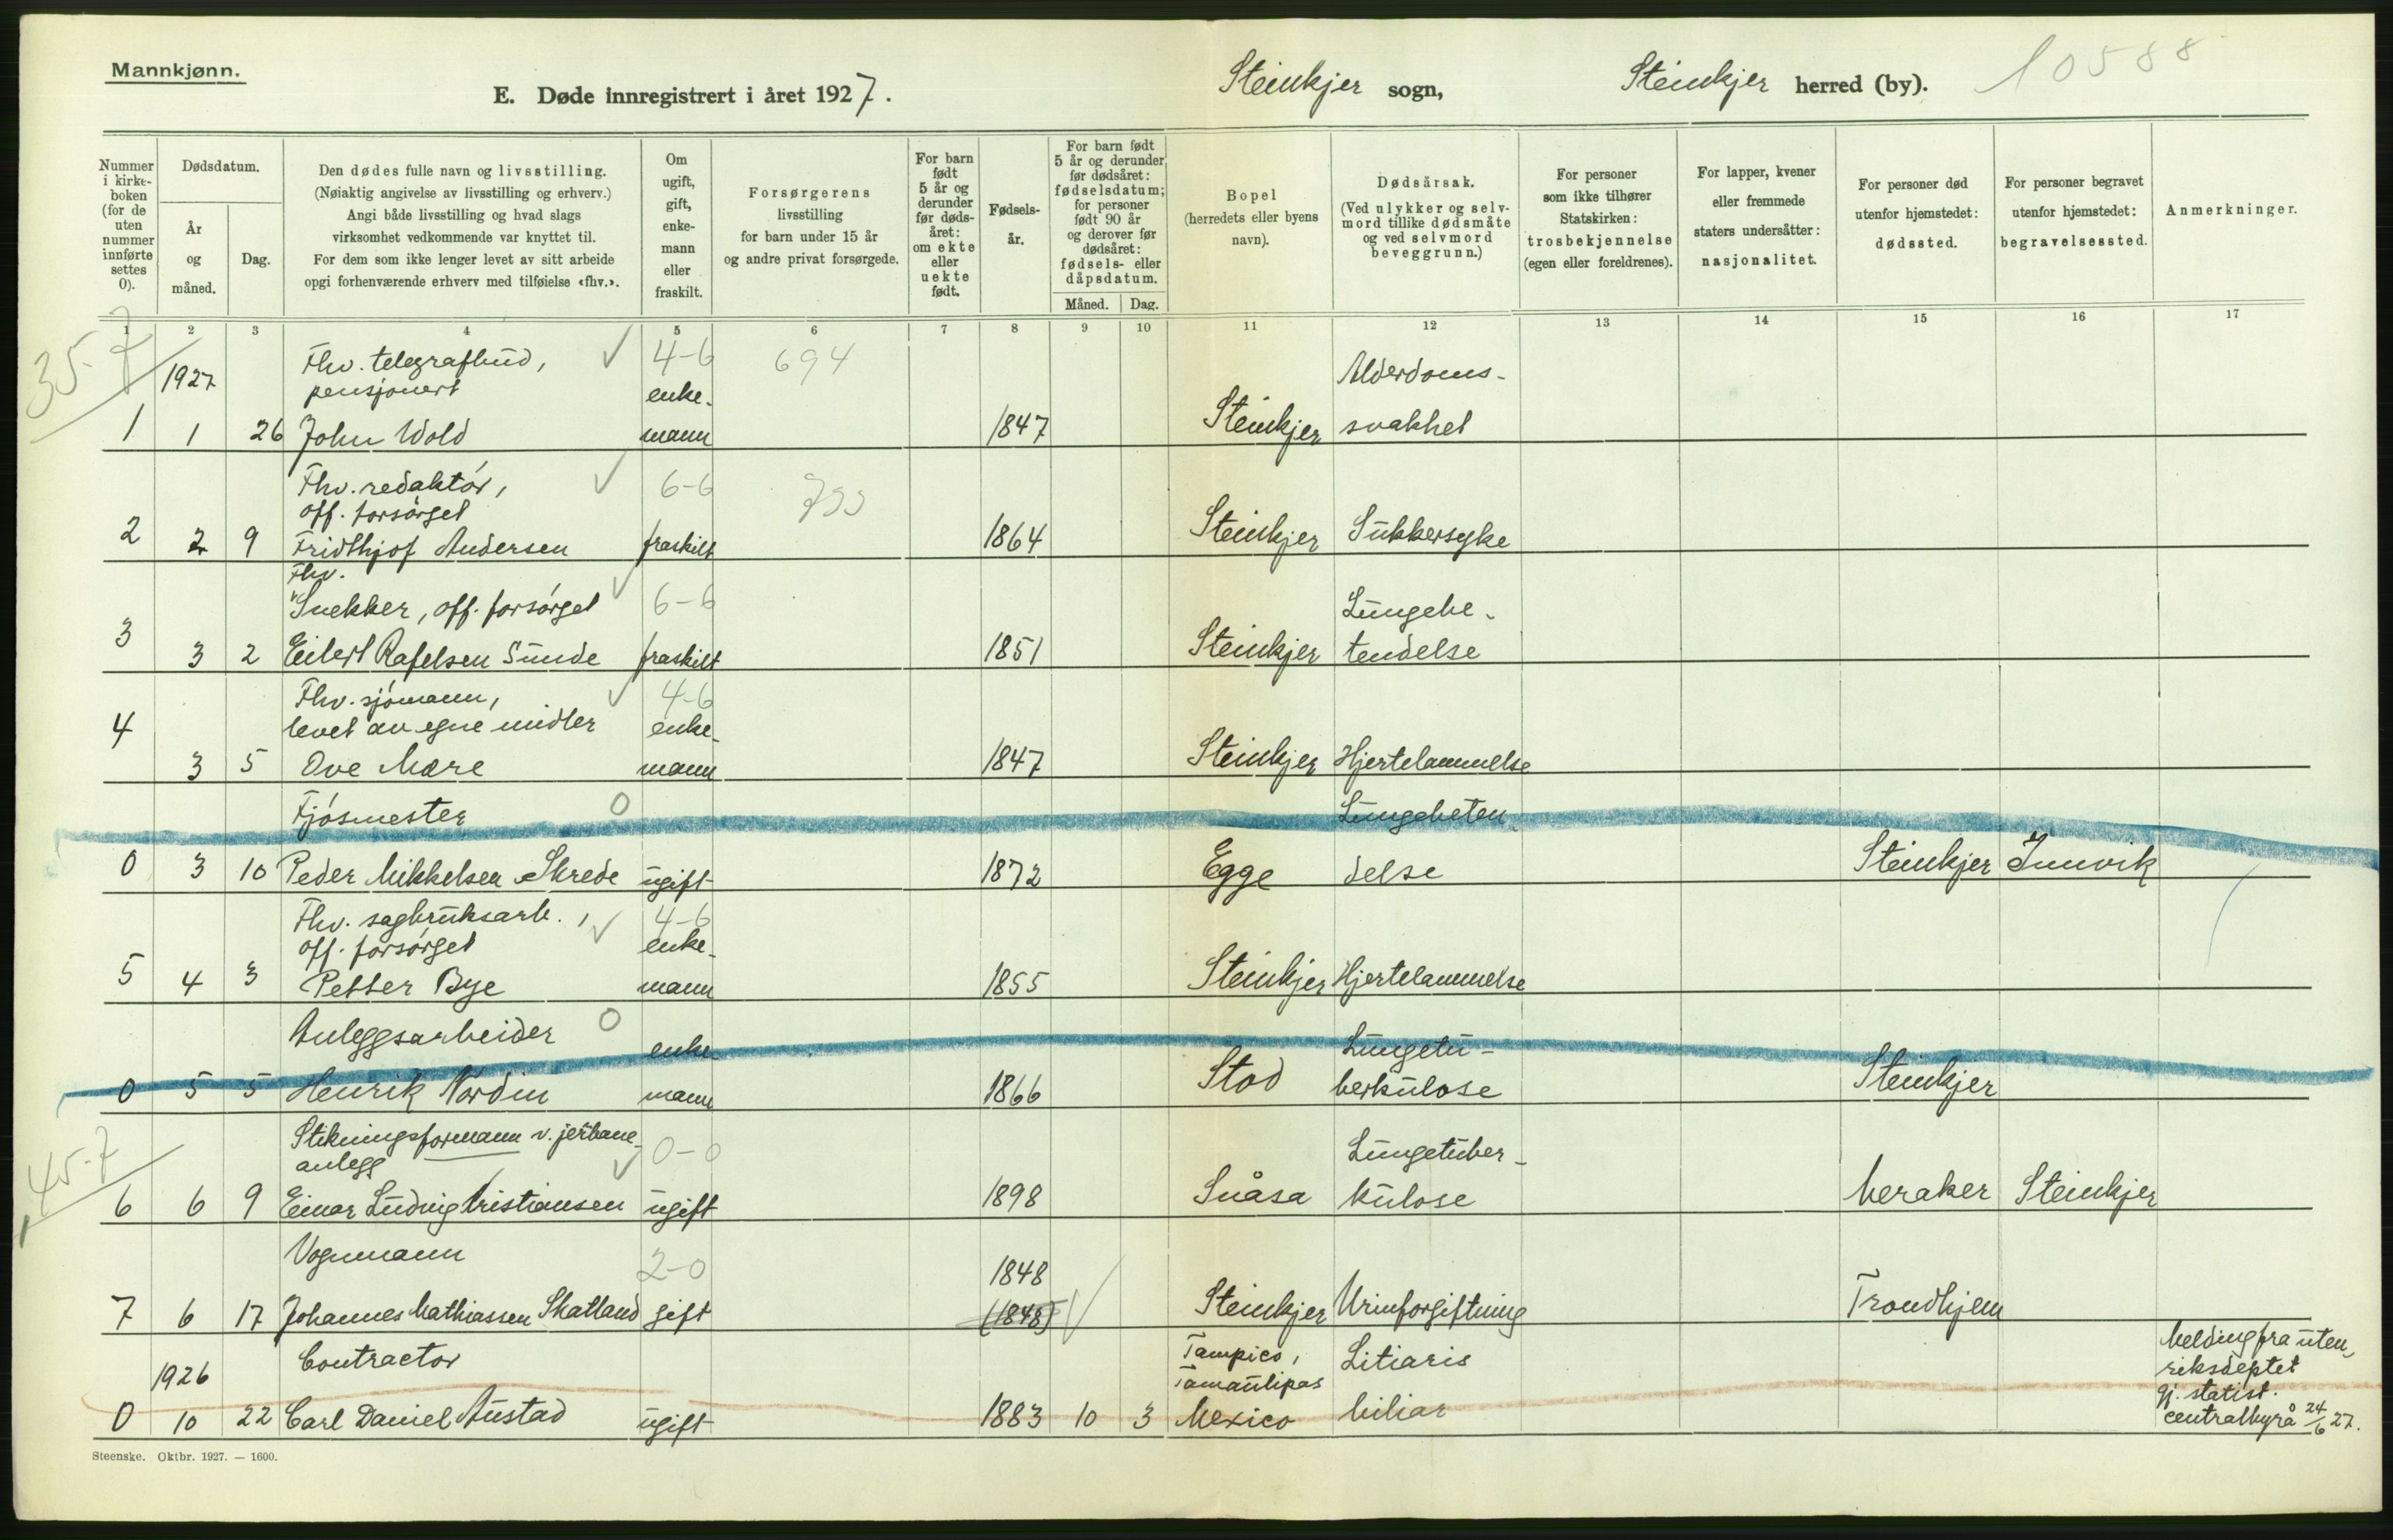 Mannkjønn.
E. Døde innregistrert i året 1927.
Steinkjer sogn,
Steinkjer herred (by).
10588
Nummer i kirke-boken (for de uten nummer innførte settes 0).
Dødsdatum.
År og måned.
Dag.
Den dødes fulle navn og livsstilling.
(Nøiaktig angivelse av livsstilling og erhverv.)
Angi både livsstilling og hvad slags
virksomhet vedkommende var knyttet til.
For dem som ikke lenger levet av sitt arbeide
opgi forhenværende erhverv med tilføielse «fhv.».
Om ugift, gift, enke-mann eller fraskilt.
Forsørgerens
livsstilling
for barn under 15 år
og andre privat forsørgede.
For barn født 5 år og derunder før døds-året: om ekte eller uekte født.
Fødsels-år.
For barn født 5 år og derunder før dødsåret: fødselsdatum; for personer født 90 år og derover før dødsåret: fødsels- eller dåpsdatum.
Måned.
Dag.
Bopel
(herredets eller byens
navn).
Dødsårsak.
(Ved ulykker og selv-
mord tillike dødsmåte
og ved selvmord
beveggrunn.)
For personer
som ikke tilhører
Statskirken:
trosbekjennelse
(egen eller foreldrenes).
For lapper, kvener
eller fremmede
staters undersåtter:
nasjonalitet.
For personer død
utenfor hjemstedet:
dødssted.
For personer begravet
utenfor hjemstedet:
begravelsessted.
Anmerkninger.
1 2 3 4 5 6 7 8 9 10 11 12 13 14 15 16 17
35-7
1927 Fhv. telegrafbud, 4-6 694 Alderdoms-
pensjonert enke-
1 1 26 John Wold mann 1847 Steinkjer svakhet
Fhv. redaktör, 6-6
off. forsörget
2 2 9 Fridthjof Andersen fraskilt 1864 Steinkjer Sukkersyke
Fhv.
Snekker, off. forsörget 6-6 Lungebe-
3 3 2 Eilert Rafelsen Sunde fraskilt 1851 Steinkjer tendelse
Fhv. sjömann, 4-6
levet av egne midler enke-
4 3 5 Ove Mære mann 1847 Steinkjer Hjertelammelse
Fjösmester 0 Lungebeten-
0 3 10 Peder Mikkelsen Skrede ugift 1872 Egge delse Steinkjer Innvik
Fhv. sagbruksarb., 4-6
off. forsörget enke-
5 4 3 Petter Bye mann 1855 Steinkjer Hjertelammelse
Anleggsarbeider 0 enke- Lungetu-
0 5 5 Henrik Nordin mann 1866 Stod berkulose Steinkjer
45-7
Stikningsformann v. jernbane- 0-0 Lungetuber-
anlegg
6 6 9 Einar Ludvig Kristiansen ugift 1898 Snåsa kulose Meraker Steinkjer
Vognmann 2-0 1848
7 6 17 Johannes Mathiassen Skatland gift (1848) Steinkjer Urinforgiftning Trondhjem
1926 Contractor Tampico, Litiaris Melding fra uten-
Tamaulipas riksdeptet
gj. statist.
0 10 22 Carl Daniel Austad ugift 1883 10 3 Mexico biliar centralbyrå 24/6 27.
Steenske. Oktbr. 1927. — 1600.